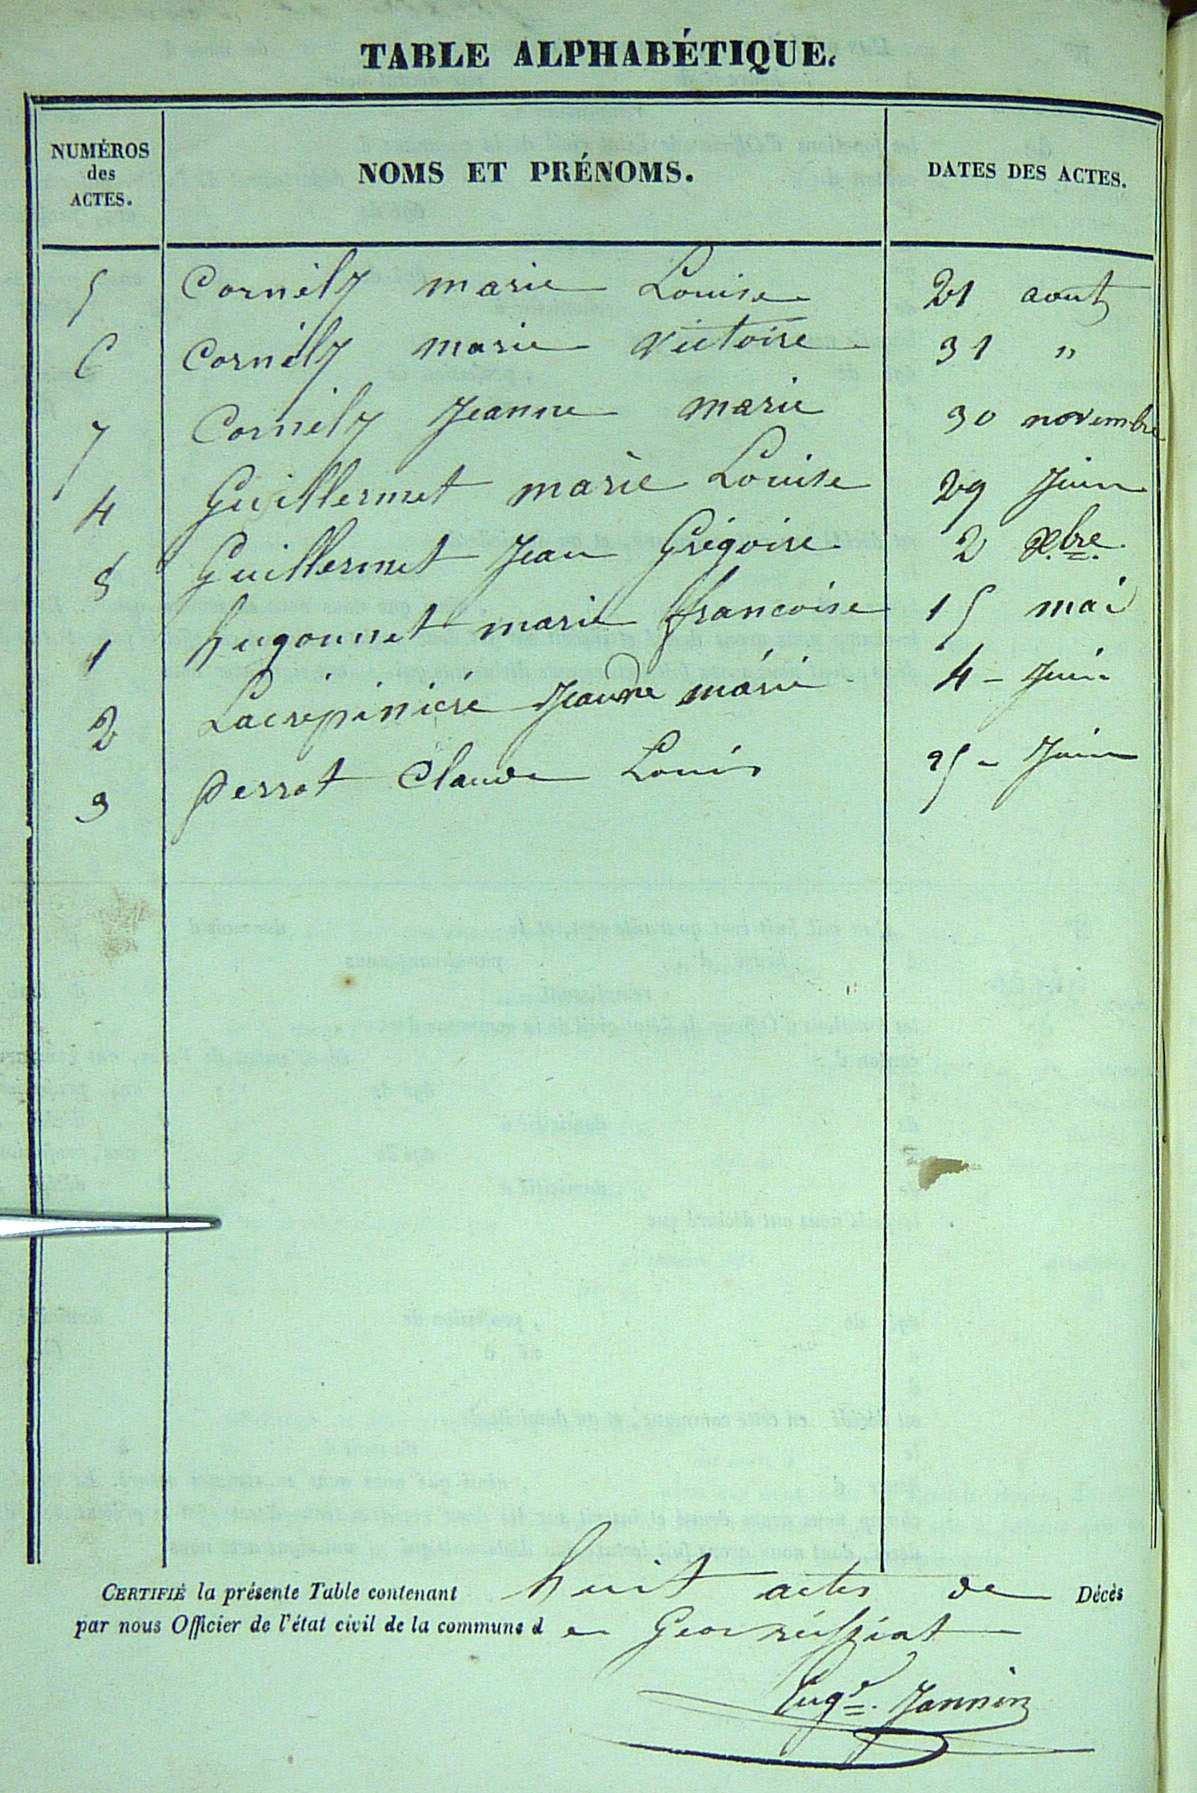 TABLE ALPHABÉTIQUE.
NUMÉROS des ACTES. NOMS ET PRÉNOMS. DATES DES ACTES.
5 Cornély marie Louise 21 aout
6 Cornély marie victoire 31 "
7 Cornély Jeanne marie 30 novembre
4 Guillermet marie Louise 29 Juin
8 Guillermet Jean Grégoire 2 xbre.
1 hugonnet marie francoise 15 mai
2 Lacrépinière Jeanne marie 4 - Juin
3 perrot Claude Louis 25 - Juin
CERTIFIÉ la présente Table contenant huit actes de Décès
par nous Officier de l'état civil de la commune de Geovreissiat
Eugne. Jannin